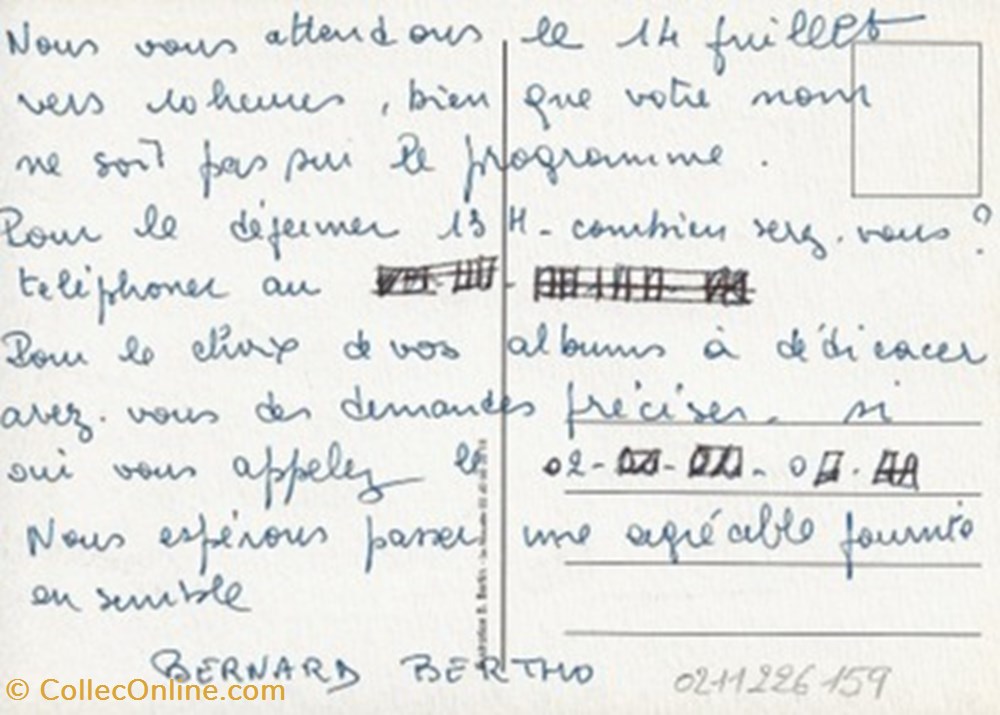 Nous vous attendons le 14 juillet
vers 10 heures, bien que votre nom
ne soit pas sur le programme.
Pour le déjeuner 13 H - combien serez-vous?
téléphoner au
Pour le choix de vos albums à dédicacer
avez-vous des demandes précises - si
oui vous appelez le 02 -
Nous espérons passer une agréable journée
ensemble
BERNARD BERTHO
0211226159
© CollecOnline.com